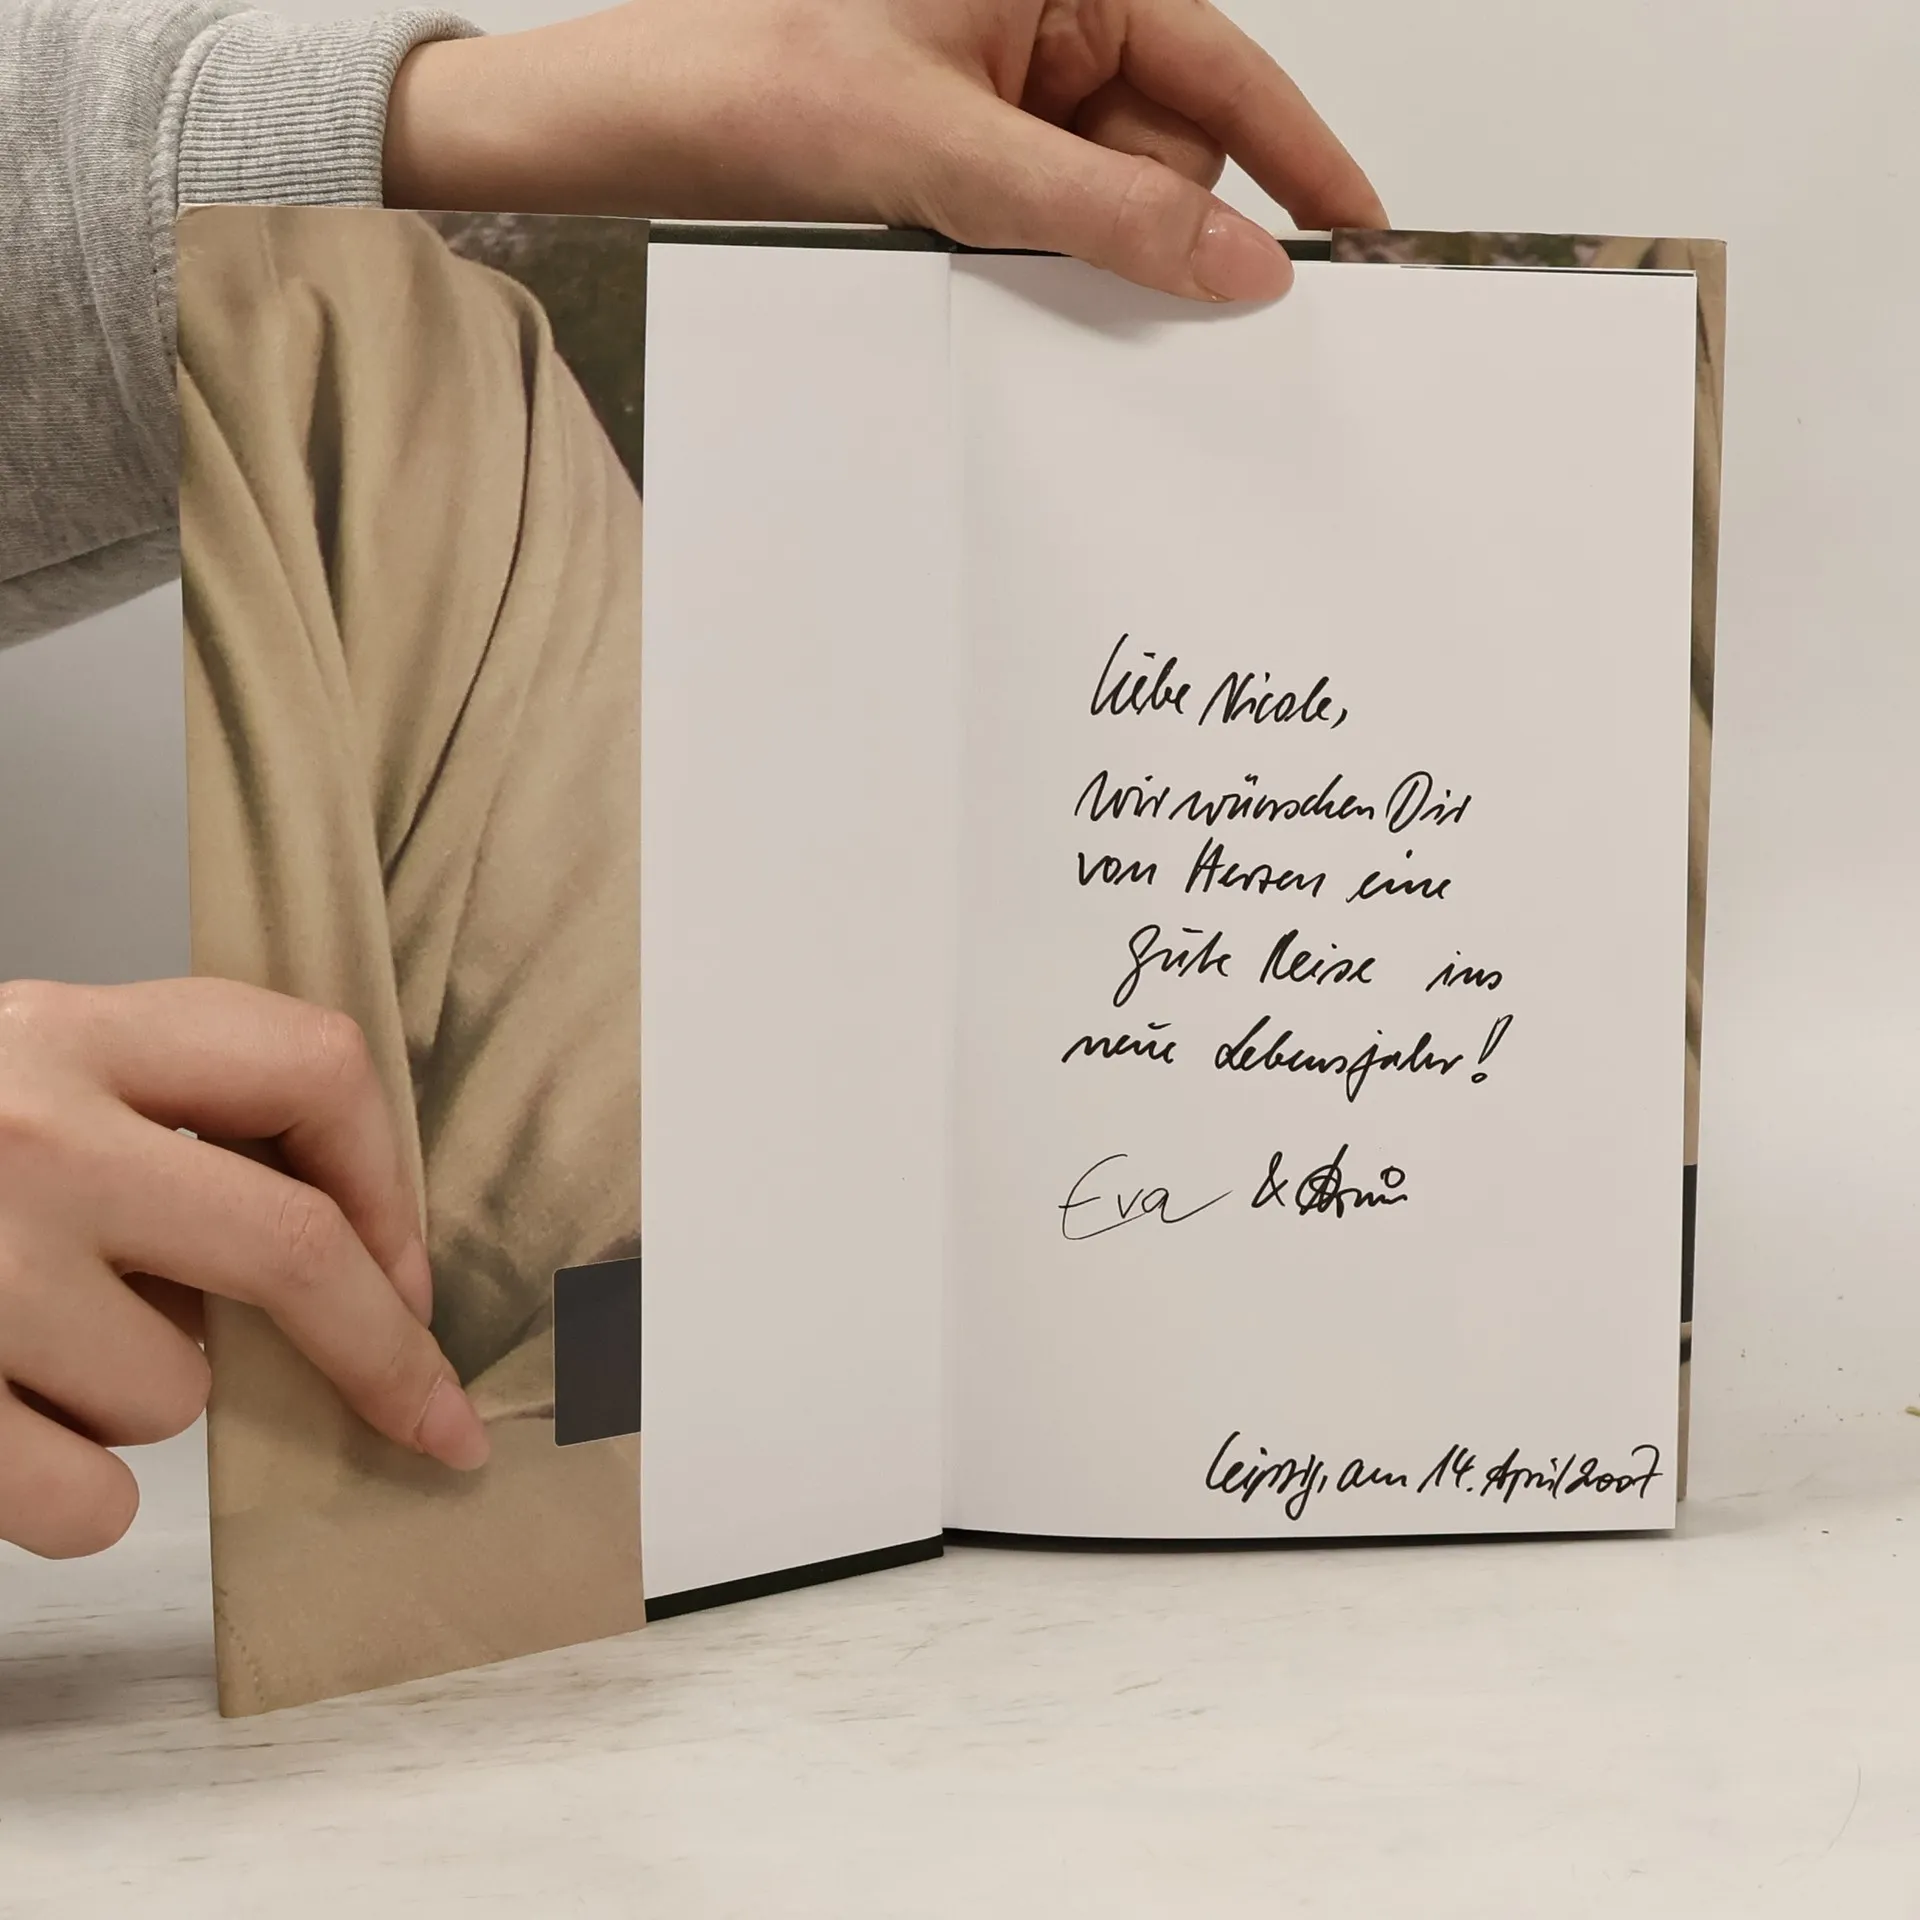 Liebe Nicole,
wir wünschen Dir
von Herzen eine
gute Reise ins
neue Lebensjahr!
Eva &
Leipzig, am 14. April 2007